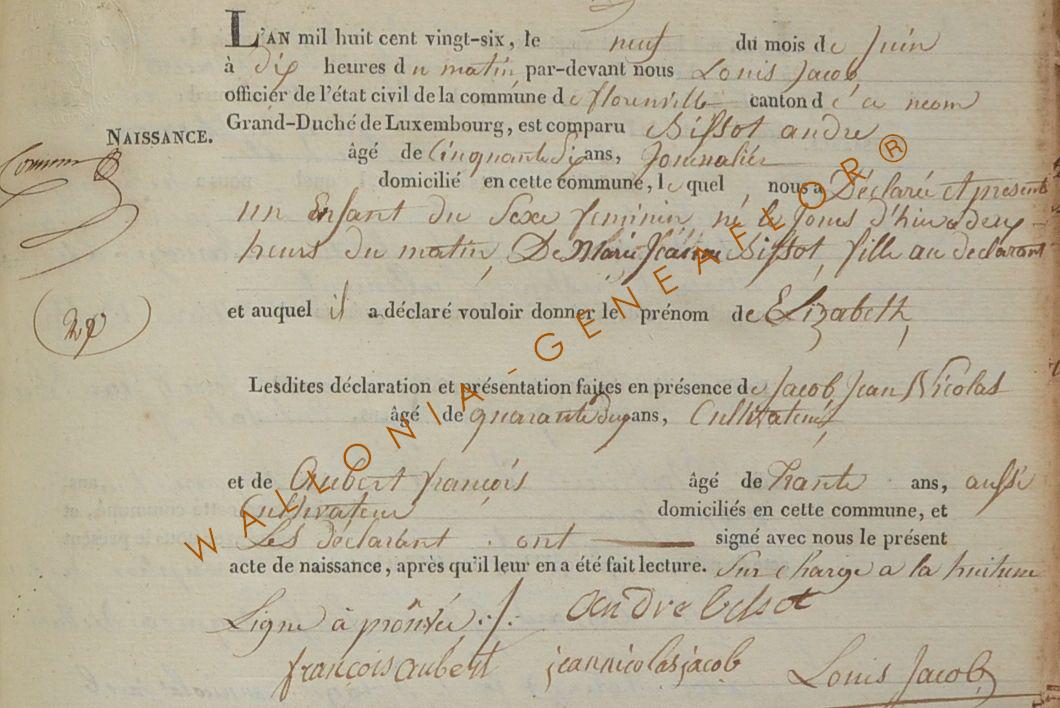 L'AN mil huit cent vingt-six, le neuf du mois de Juin
à dix heures du matin, par-devant nous Louis Jacob
officier de l'état civil de la commune de florenville canton d
Grand-Duché de Luxembourg, est comparu Bissot andre
NAISSANCE.
âgé de Cinquante Six ans, Journalier
domicilié en cette commune, le quel nous a Déclaré et présenté
un Enfant du Sexe feminin né le Jours d'hui a deux
heurs du matin, De Marie Jeanne Bissot, fille au declarant
27
et auquel il a déclaré vouloir donner le prénom de Elizabeth,
Lesdites déclaration et présentation faites en présence de Jacob Jean Nicolas
âgé de quarante deux ans, Cultivateur,
et de Aubert françois âgé de trante ans, aussi
Cultivateur domiciliés en cette commune, et
Les déclarant ont signé avec nous le présent
acte de naissance, après qu'il leur en a été fait lecture. Sur charge a la huitieme
Ligne à prouvée ./.
andre bissot
françois aubert jeannicolas jacob Louis Jacob
WALLONIA-GENEAFLOR®